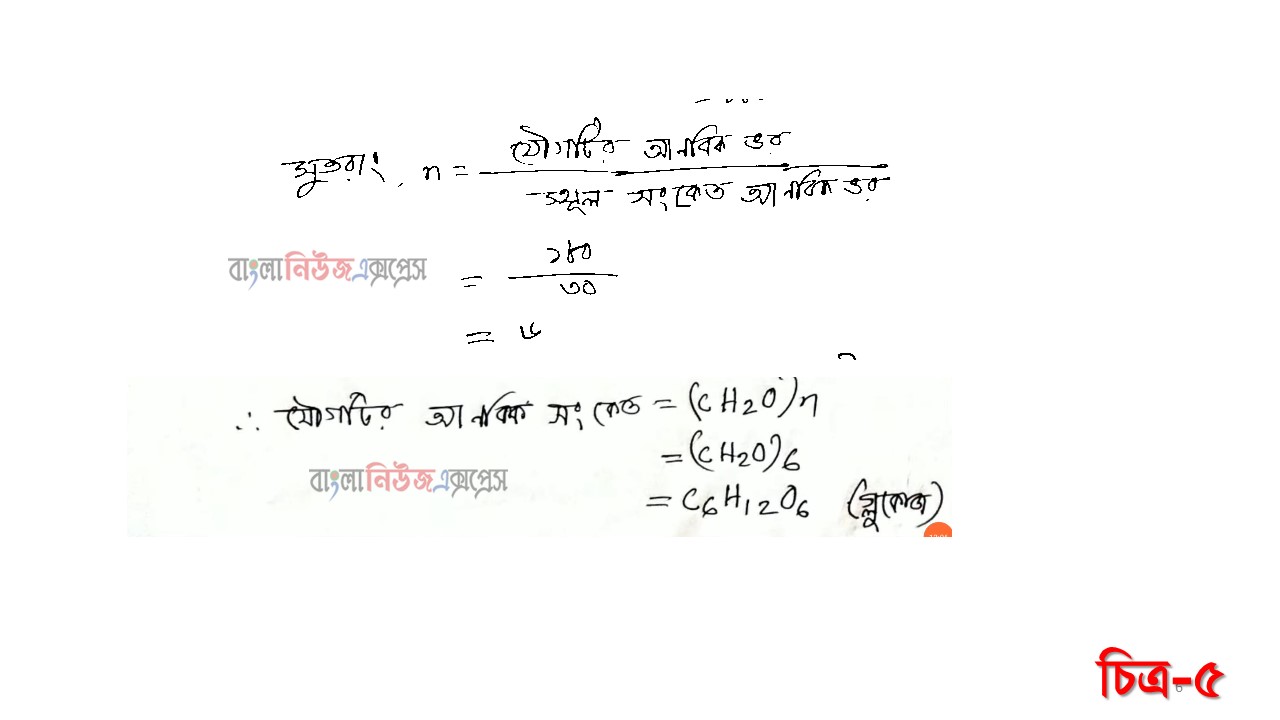 সুতরাং, n = যৌগটির আনবিক ভর
স্থূল সংকেত আনবিক ভর
বাংলানিউজএক্সপ্রেস
= ১৮০
৩০
= ৬
∴ যৌগটির আনবিক সংকেত = (CH2O)n
= (CH2O)6
বাংলানিউজএক্সপ্রেস
= C6H12O6 (গ্লুকোজ)
চিত্র-৫
6